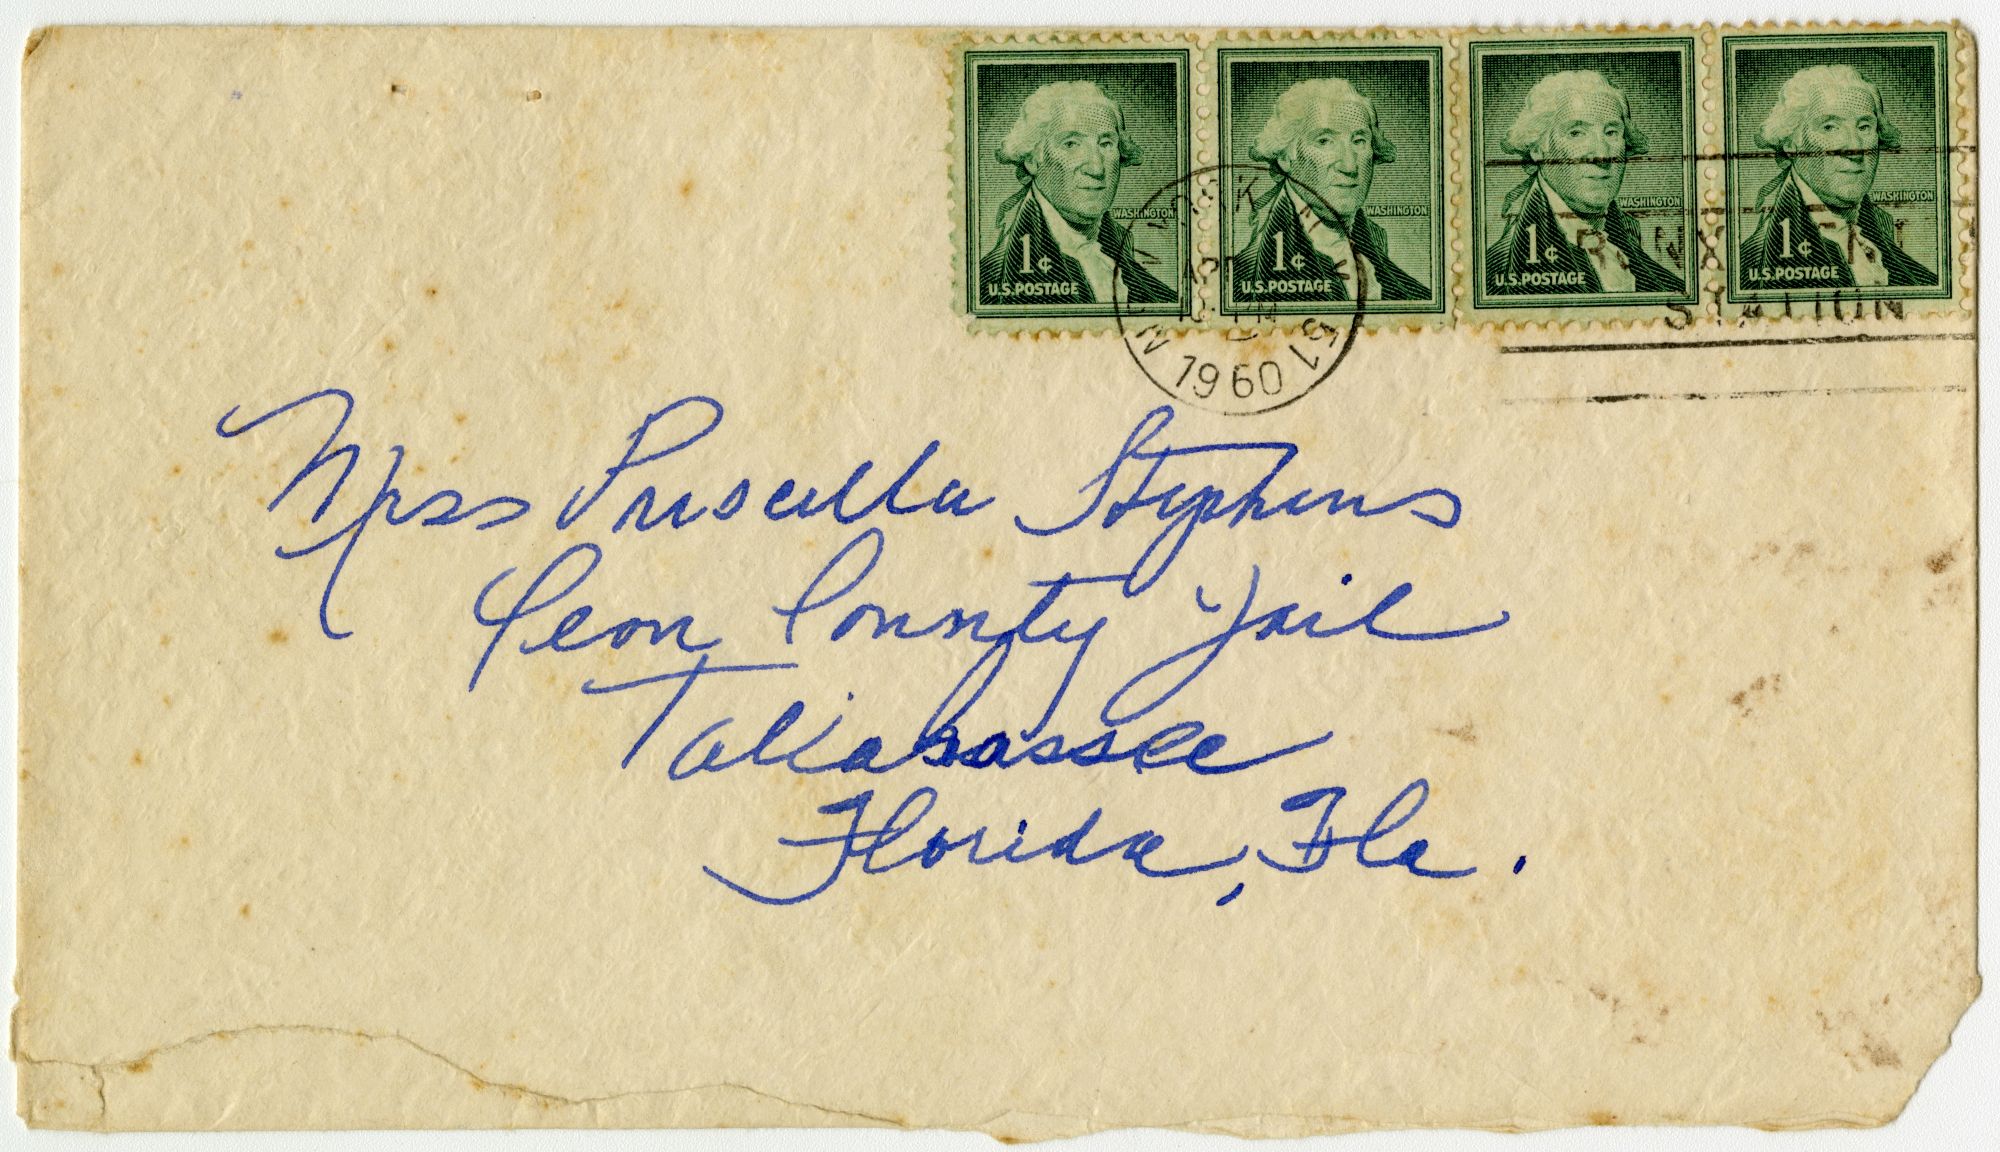 WASHINGTON
1¢
U.S. POSTAGE
WASHINGTON
1¢
U.S. POSTAGE
WASHINGTON
1¢
U.S. POSTAGE
WASHINGTON
1¢
U.S. POSTAGE
YORK N.Y.
1960
51
STATION
Miss Priscilla Stephens
Leon County Jail
Tallahassee
Florida, Fla.